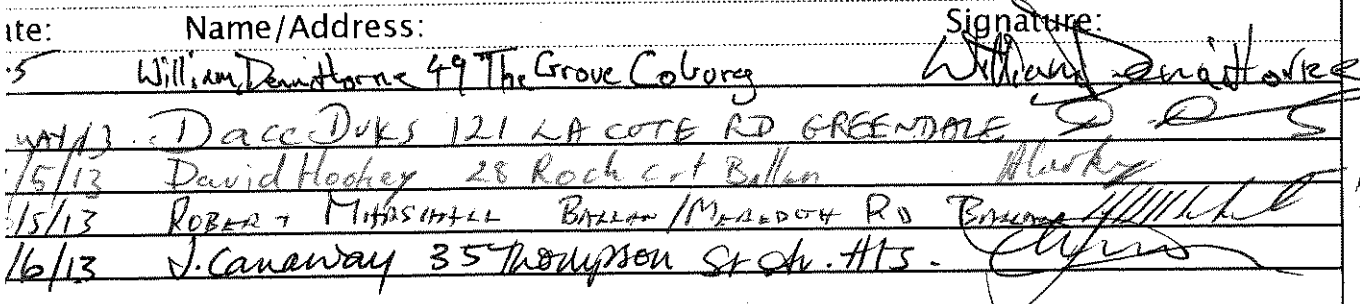 ate: Name/Address: Signature:
.5 William Demithorne 49 The Grove Coburg William Demithorne
MAY/13. Dace Duks 121 LA COTE RD GREENDALE
/5/13 David Hookey 28 Roch crt Ballan
/5/13 ROBERT MARSHALL BALLAN/MEREDITH RD BALLAN
/6/13 J. Canaway 35 Thompson St